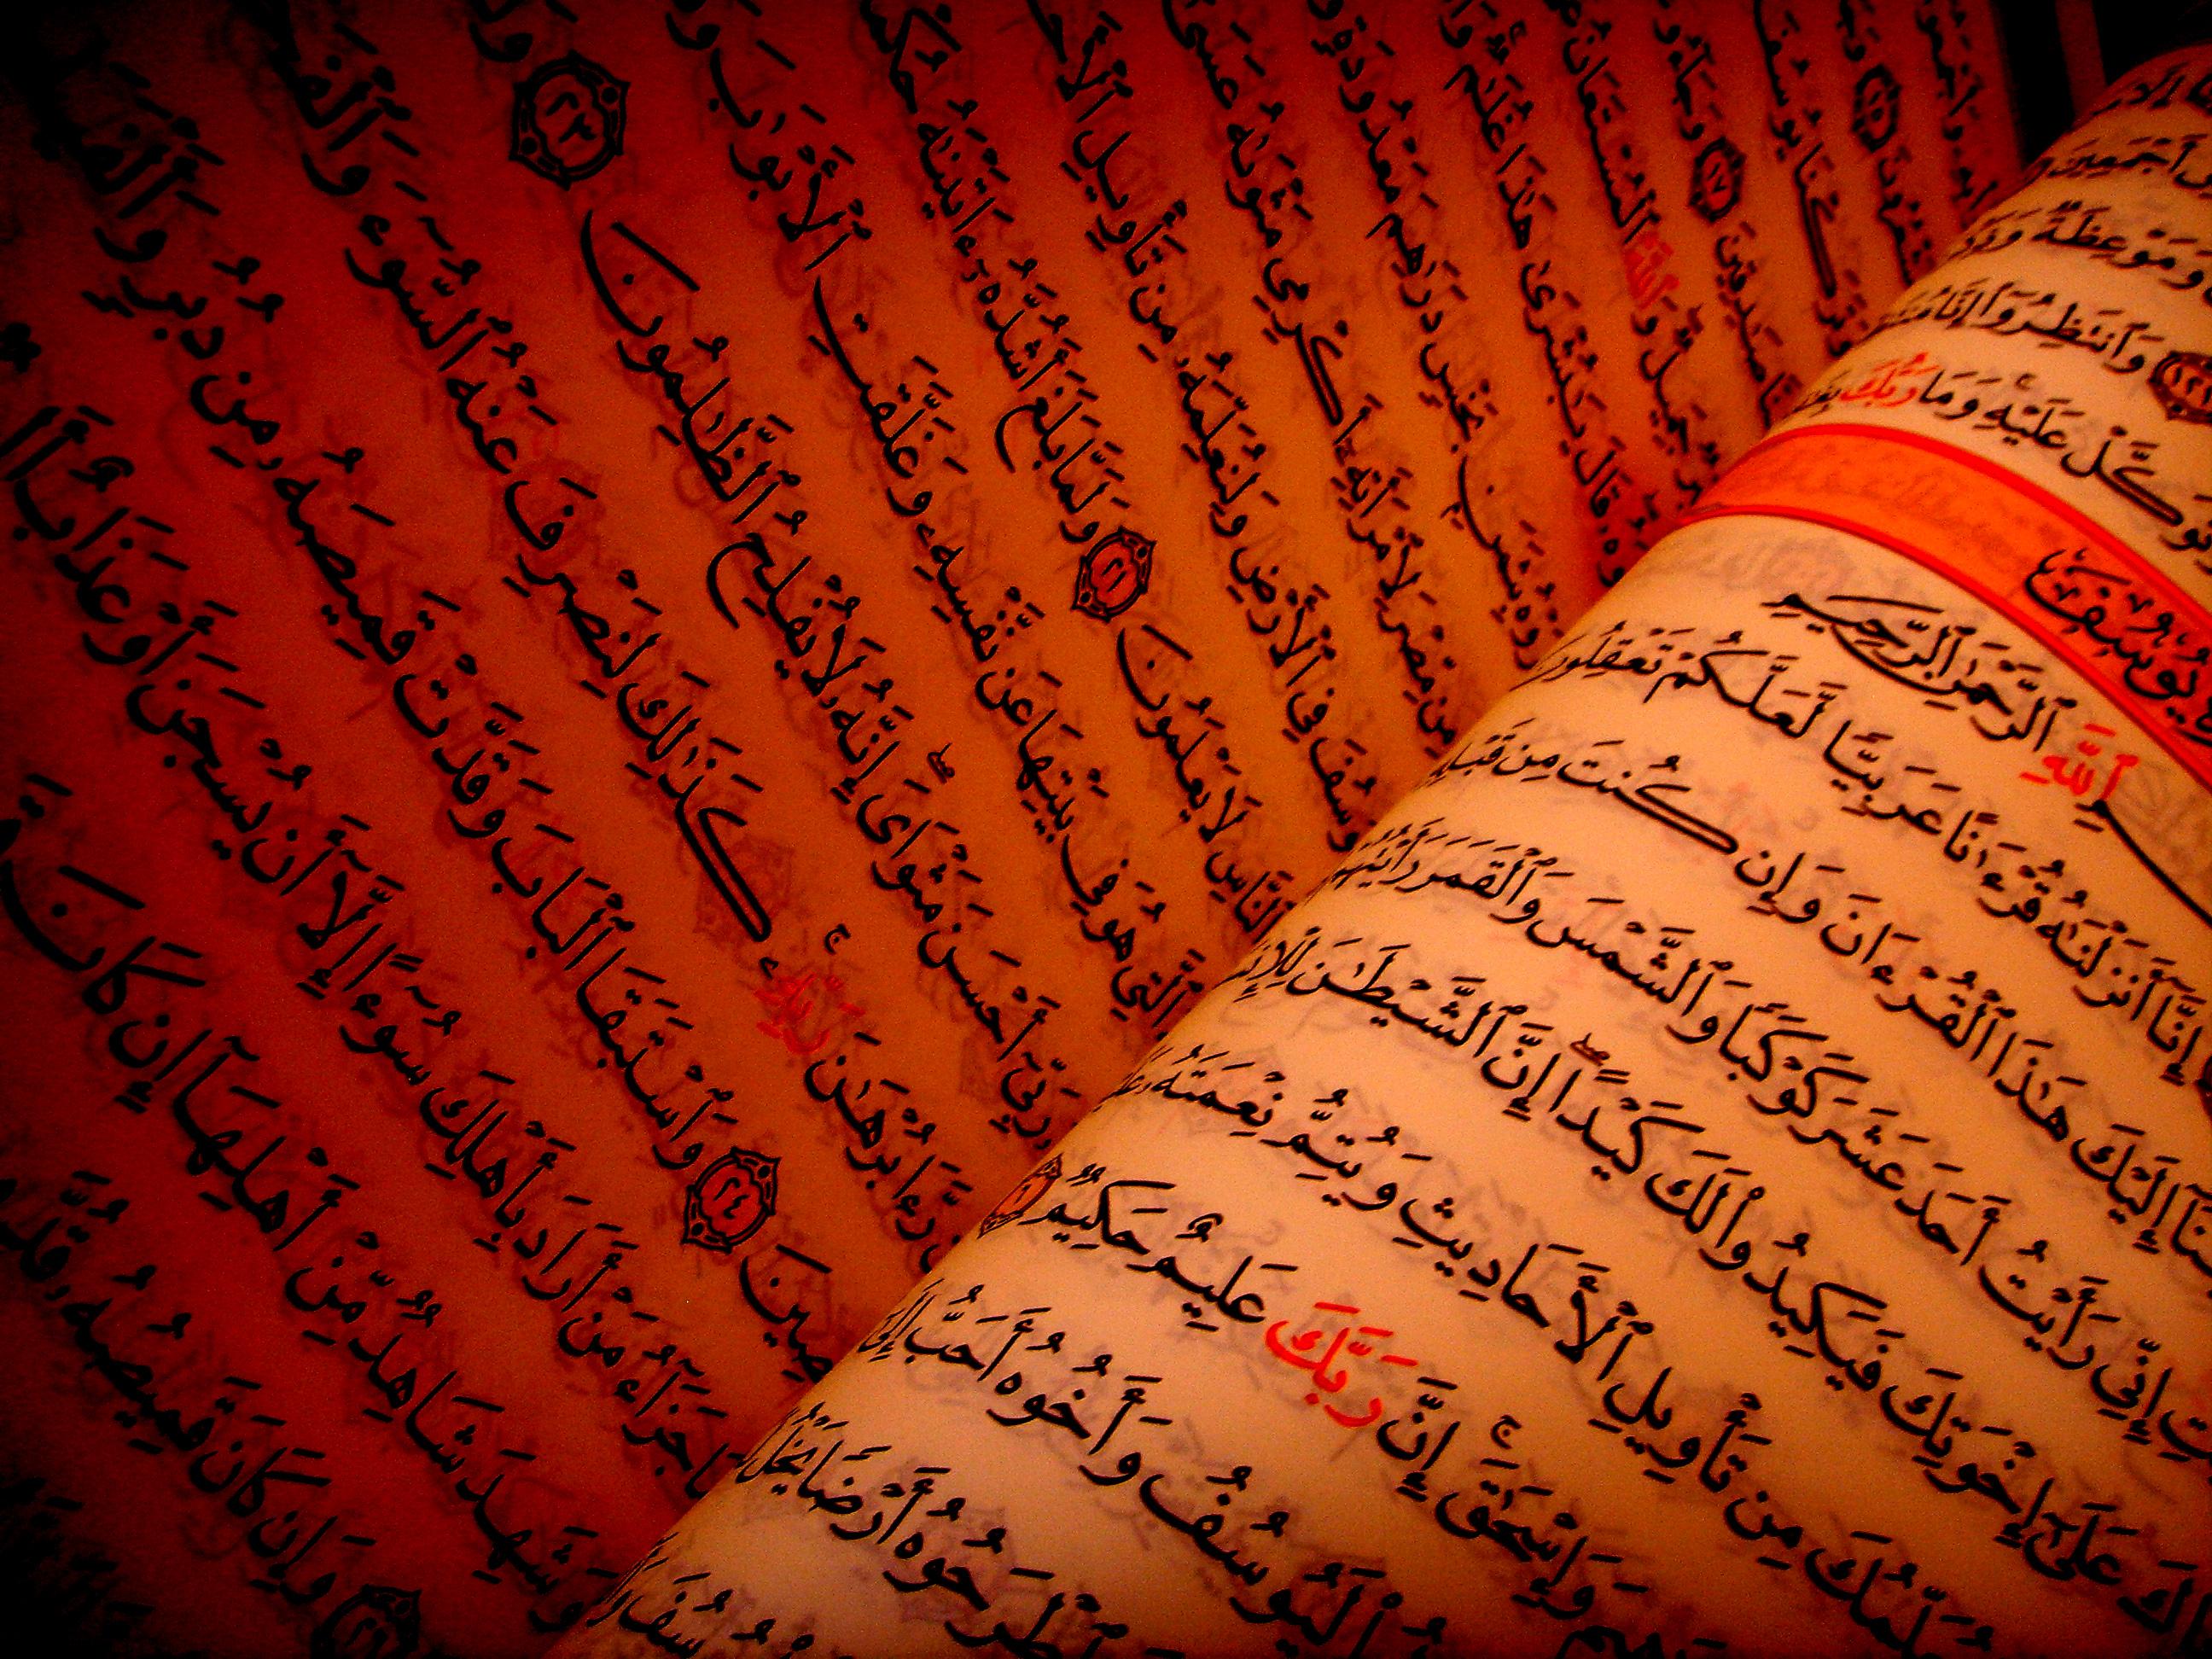 أَجْمَعِينَ
وَمَوْعِظَةٌ
وَٱنتَظِرُوٓا۟ إِنَّا
وَتَوَكَّلْ عَلَيْهِ وَمَا رَبُّكَ
يُوسُفَ
ٱللَّهِ ٱلرَّحْمَٰنِ ٱلرَّحِيمِ
إِنَّآ أَنزَلْنَٰهُ قُرْءَٰنًا عَرَبِيًّا لَّعَلَّكُمْ تَعْقِلُونَ
إِلَيْكَ هَٰذَا ٱلْقُرْءَانَ وَإِن كُنتَ مِن
إِنِّى رَأَيْتُ أَحَدَ عَشَرَ كَوْكَبًا وَٱلشَّمْسَ وَٱلْقَمَرَ
عَلَىٰٓ إِخْوَتِكَ فَيَكِيدُوا۟ لَكَ كَيْدًا ۖ إِنَّ ٱلشَّيْطَٰنَ
مِن تَأْوِيلِ ٱلْأَحَادِيثِ وَيُتِمُّ نِعْمَتَهُۥ
وَإِسْحَٰقَ ۚ إِنَّ رَبَّكَ عَلِيمٌ حَكِيمٌ ٦
لَيُوسُفُ وَأَخُوهُ أَحَبُّ إِلَىٰٓ
ٱطْرَحُوهُ أَرْضًا يَخْلُ
وَتَرَكْنَا يُوسُفَ
صَٰدِقِينَ ١٧ وَجَآءُو
جَمِيلٌ ۖ وَٱللَّهُ ٱلْمُسْتَعَانُ
قَالَ يَٰبُشْرَىٰ هَٰذَا غُلَٰمٌ ۚ
بِثَمَنٍۭ بَخْسٍ دَرَٰهِمَ مَعْدُودَةٍ
مِن مِّصْرَ لِٱمْرَأَتِهِۦٓ أَكْرِمِى مَثْوَىٰهُ عَسَىٰٓ
يُوسُفَ فِى ٱلْأَرْضِ وَلِنُعَلِّمَهُۥ مِن تَأْوِيلِ
ٱلنَّاسِ لَا يَعْلَمُونَ ٢١ وَلَمَّا بَلَغَ أَشُدَّهُۥٓ ءَاتَيْنَٰهُ
ٱلَّتِى هُوَ فِى بَيْتِهَا عَن نَّفْسِهِۦ وَغَلَّقَتِ ٱلْأَبْوَٰبَ وَ
رَبِّىٓ أَحْسَنَ مَثْوَاىَ ۖ إِنَّهُۥ لَا يُفْلِحُ ٱلظَّٰلِمُونَ ٢٣
رَّءَا بُرْهَٰنَ رَبِّهِۦ ۚ كَذَٰلِكَ لِنَصْرِفَ عَنْهُ ٱلسُّوٓءَ
٢٤ وَٱسْتَبَقَا ٱلْبَابَ وَقَدَّتْ قَمِيصَهُۥ مِن دُبُرٍ
جَزَآءُ مَنْ أَرَادَ بِأَهْلِكَ سُوٓءًا إِلَّآ أَن يُسْجَنَ أَوْ عَذَابٌ
وَشَهِدَ شَاهِدٌ مِّنْ أَهْلِهَآ إِن كَانَ
٢٦ وَإِن كَانَ قَمِيصُهُۥ قُدَّ